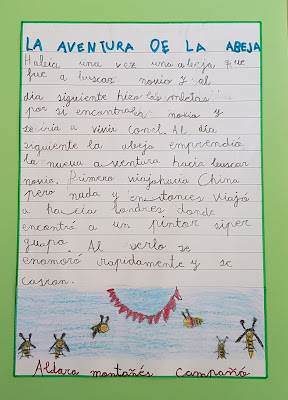 LA AVENTURA DE LA ABEJA
Había una vez una abeja que
fue a buscar novio y al
día siguiente hizo las maletas
por si encontraba novio y
se iria a vivir con el. Al día
siguiente la abeja emprendió
la nueva aventura hacia buscar
novio. Primero viajo hacia China
pero nada y entonces viajó
a hacia londres donde
encontró a un pintor súper
guapo. Al verlo se
enamoró rapidamente y se
casaron.
Aldara montañés Campañó